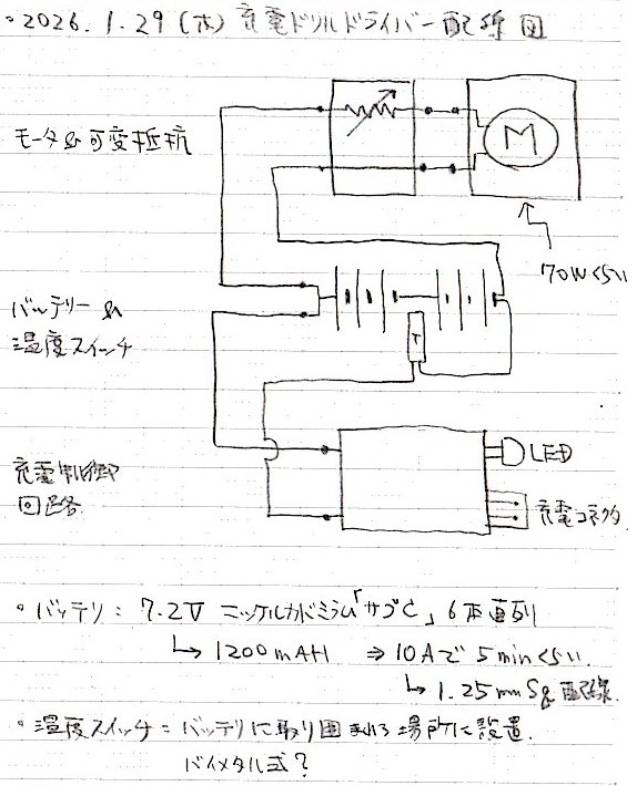 ・2026.1.29(木) 充電ドリルドライバー配線図
モータ&可変抵抗
M
70Wくらい
バッテリー&
温度スイッチ
T
LED
充電制御
回路
充電コネクタ
・バッテリ: 7.2V ニッケルカドミウム「サブC」6本直列
↳ 1200mAH ⇒ 10Aで 5minくらい.
↳ 1.25mmSq 配線.
・温度スイッチ = バッテリに取り囲まれる場所に設置.
バイメタル式?